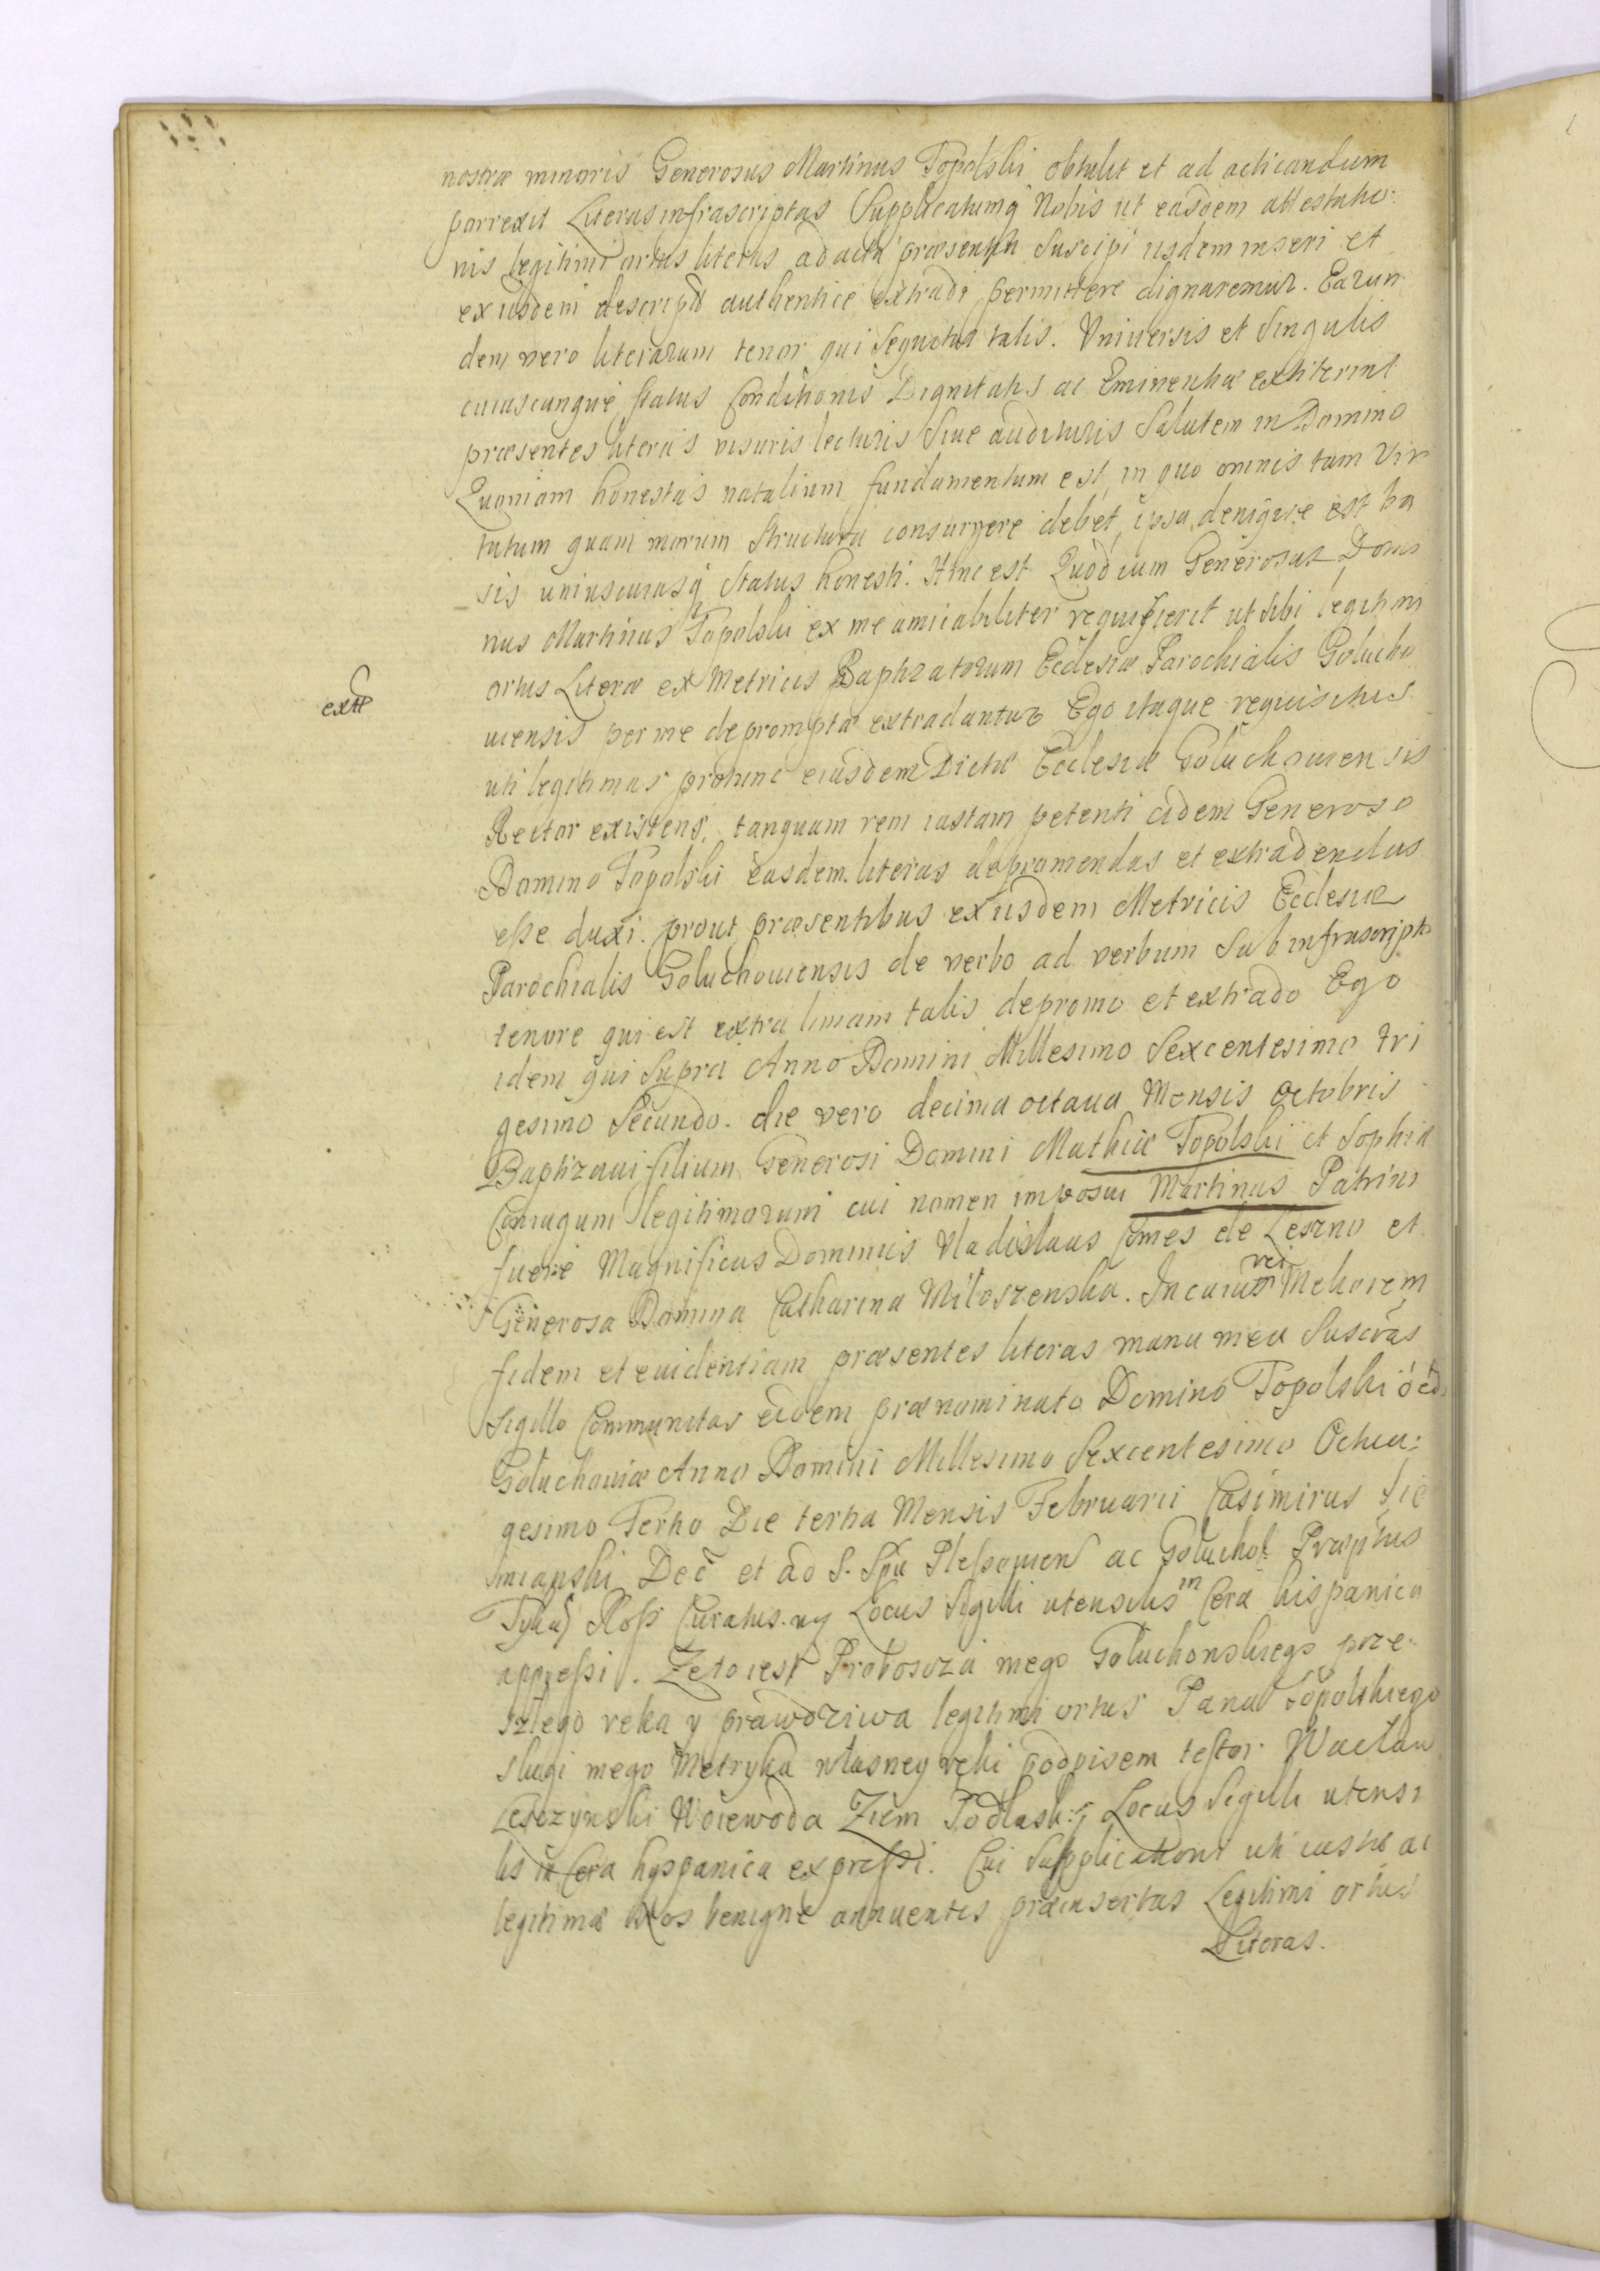 nostræ minoris Generosus Martinus Topolski obtulit et ad acticandum
porrexit Literas infrascriptas Supplicatumq Nobis ut easdem attestatio:
nis legitimi ortus literas ad acta præsentia Suscipi iisdem inseri et
ex iisdem descriptū authentice extradi permittere dignaremur. Earun
dem vero literarum tenor qui Sequitur talis. Vniuersis et Singulis
cuiuscunque Status Conditionis Dignitatis ac Eminentiæ extiterint
præsentes literas visuris lecturis Siue audituris Salutem in Domino
Quoniam honestas natalium fundamentum est, in quo omnis tam Vir
tutum quam morum Structura consurgere debet, ipsa denique est ba
sis uniuscuiusq Status honesti. Hinc est Quod cum Generosus Domi
nus Martinus Topolski ex me amicabiliter requisierit ut Sibi legitimi
ortus Literæ ex Metricis Baptizatorum Ecclesiæ Parochialis Golucho
uiensis per me depromptæ extradantur Ego itaque requisitus
uti legitimus protunc eiusdem Dictæ Ecclesiæ Goluchouiensis
Rector existens, tanquam rem iustam petenti eidem Generoso
Domino Topolski easdem literas depromendas et extradendas
esse duxi. prout præsentibus ex iisdem Metricis Ecclesiæ
Parochialis Goluchouiensis de verbo ad verbum Sub infrascripto
extt
tenore qui est extra limam talis depromo et extrado Ego
idem qui Supra Anno Domini Millesimo Sexcentesimo tri
gesimo Secundo. die vero decima octaua Mensis Octobris
Baptizaui filium Generosi Domini Mathiæ Topolski et Sophiæ
Coniugum legitimorum cui nomen imposui Martinus Patrini
fuere Magnificus Dominus Vladislaus Comes de Leszno et
Generosa Domina Catharina Miłoszenska. In cuius rei Meliorem
fidem et euidentiam præsentes literas manu mea Suscrās
Sigillo Communitas eidem prænominato Domino Topolski
Goluchouiæ Anno Domini Millesimo Sexcentesimo Octua:
gesimo Tertio Die tertia Mensis Februarii Casimirus Sie
mianski Dec̄ et ad S. Spū Plessouien ac Goluchoł Præptus
Curatus. Locus Sigilli utensilis in Cera hispanica
appressi. Ze to iest Proboscza mego Goluchonskiego prze
szłego reka y prawdziwa legitimi ortus Pana Topolskiego
slugi mego Metryka własney reki podpisem testor Wacław
Lesczynski Woiewoda Ziem Podlask: Locus Sigilli utensi
lis in Cera hyspanica expressi. Cui Supplicationi uti iustæ ac
legitimæ Nos benigne annuentes præinsertas Legitimi ortus
Literas.